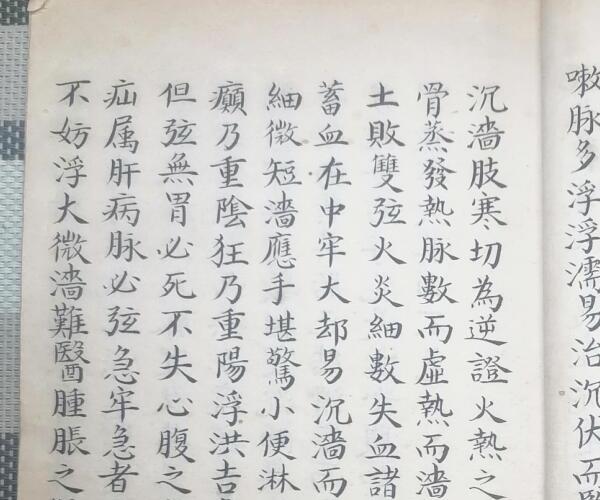 嗽脉多浮浮濡易治沉伏而
沉濇肢寒切為逆證火熱之
骨蒸發熱脉數而虛熱而濇
土敗雙弦火炎細數失血諸
蓄血在中牢大却易沉濇而
細微短濇應手堪驚小便淋
癲乃重陰狂乃重陽浮洪吉
但弦無胃必死不失心腹之
疝属肝病脉必弦急牢急者
不妨浮大微濇難醫腫脹之